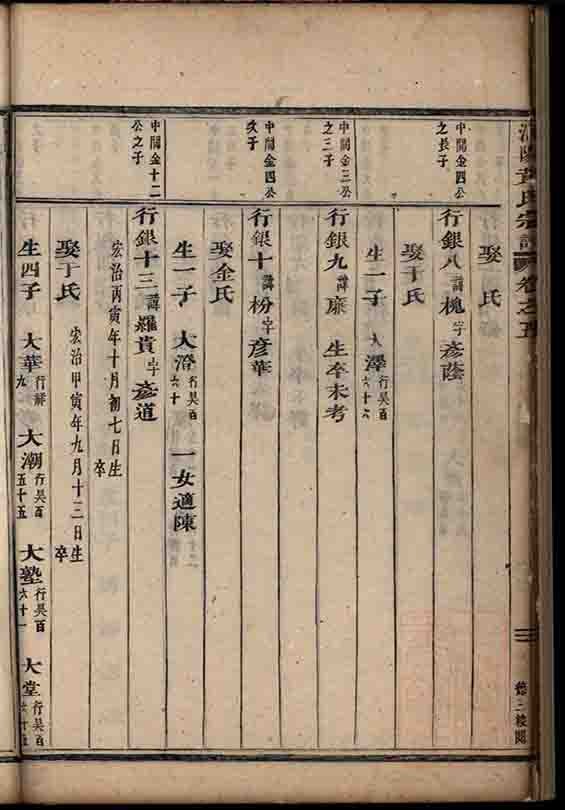 黃氏宗譜 卷之五
三
娶 氏
中關金四公之長子
行銀八 諱槐 字彥蔭
娶于氏
生一子 大澤 行昊百六十六
中關金三公之三子
行銀九 諱廉 生卒未考
中關金四公次子
行銀十 諱枌 字彥華
娶金氏
生一子 大澄 行昊百六十 一女適陳
中關金十二公之子
行銀十三 諱羅貴 字彥道
宏治丙寅年十月初七日生 卒
娶于氏 宏治甲寅年九月十三日生 卒
生四子 大華 行 九 大潮 行昊百五十五 大塾 行昊百六十一 大堂 行昊百六十五